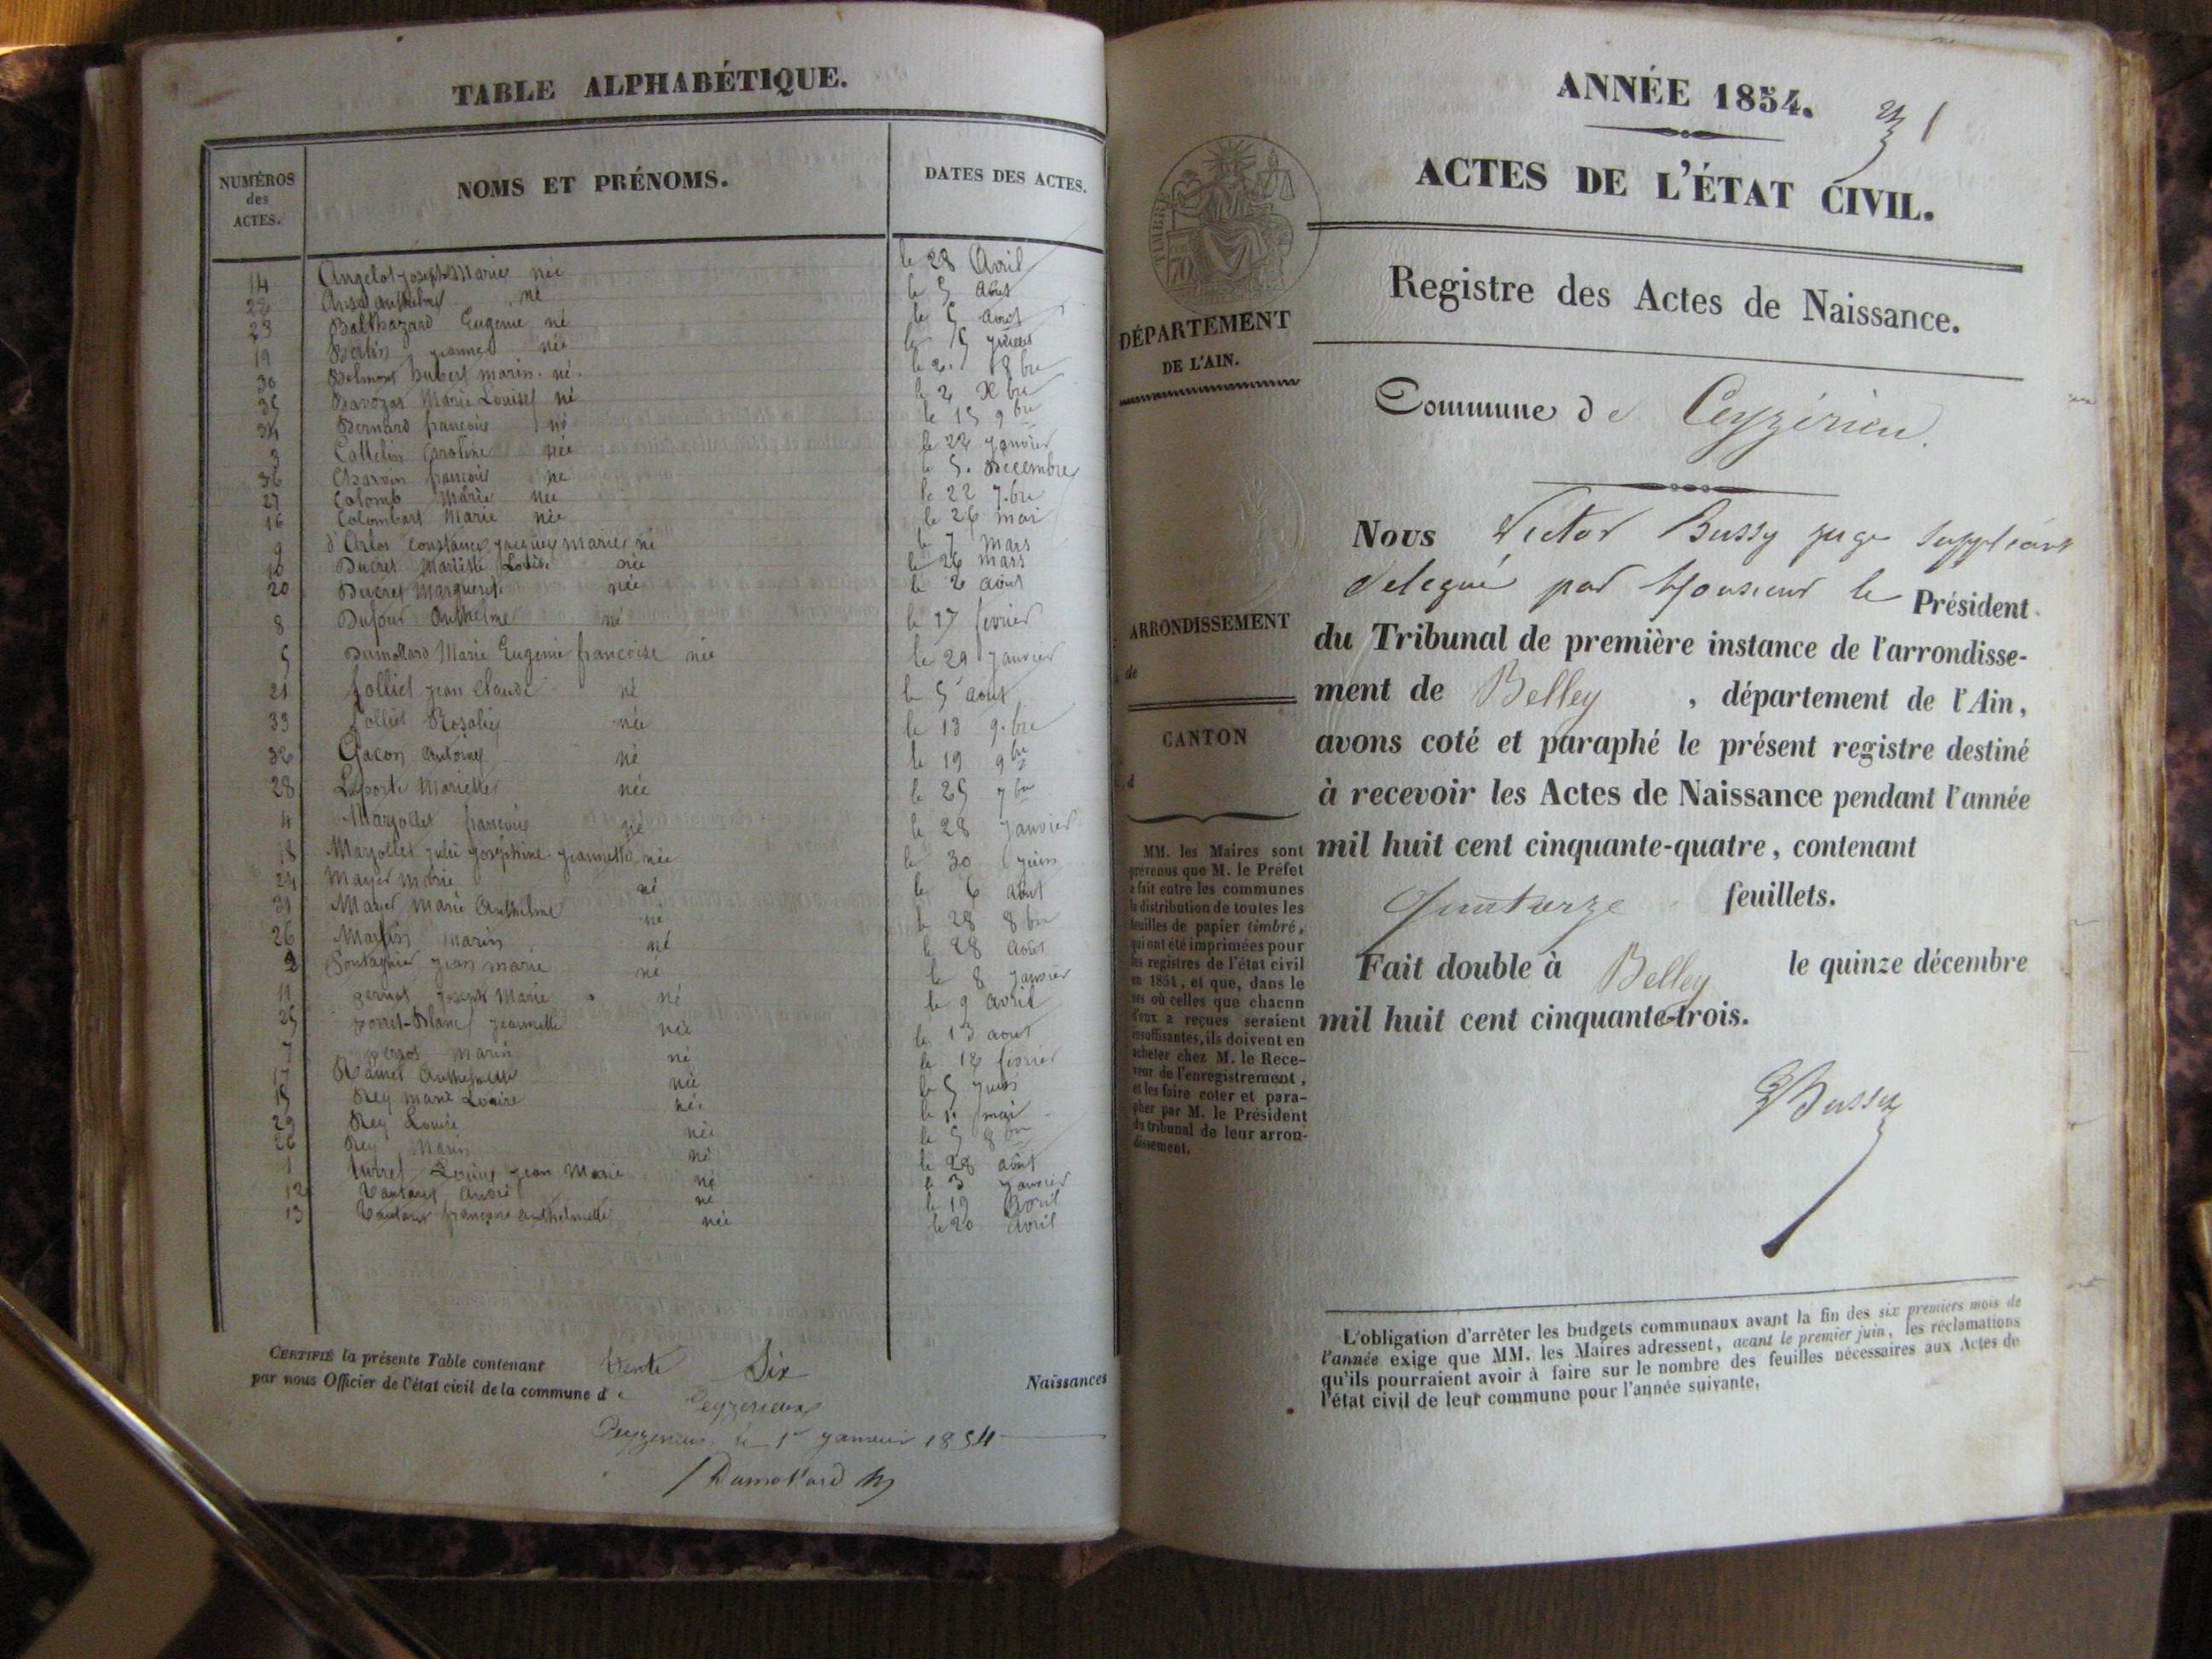 TABLE ALPHABÉTIQUE.
NUMÉROS
des
ACTES.
NOMS ET PRÉNOMS.
DATES DES ACTES.
14 Angelot Joseph Marie né le 28 Avril
22 Anthelme né le 5 Août
23 Balthazard Eugene né le 5 Août
19 Bertin Jeanne née le 15 Juillet
30 Belmont Hubert Marin né le 8bre
35 Bavozat Marie Louise né le 2 Xbre
34 Bernard françois né le 15 9bre
3 Cattelin Caroline née le 22 Janvier
36 Charvin françois né le 5 Decembre
27 Colomb Marie née le 22 7bre
16 Colombart Marie née le 26 mai
9 d'Arlos Constance Jacques Marie né le 7 mars
10 Ducret Louise née le 26 mars
20 Ducret Marguerite née le 2 août
8 Dufour Anthelme né le 17 fevrier
5 Dumollard Marie Eugenie francoise née le 29 Janvier
21 folliet Jean Claude né le 5 août
33 folliet Rosalie née le 13 9bre
32 Gacon Antoine né le 19 9bre
28 Laporte Mariette née le 25 7bre
4 Marjollet françois né le 28 Janvier
18 Marjollet Julie Joséphine Jeannette née le 30 Juin
24 Mayer Marie né le 6 août
31 Mayer Marie Anthelme né le 28 8bre
26 Martin Marin né le 28 Août
2 Jean Marie né le 8 Janvier
11 Joseph Marie né le 9 Avril
25 Jeannette née le 13 août
7 Marin né le 12 fevrier
17 Ramel Anthelmette née le 5 Juin
15 Rey Marie Louise née le 1er mai
29 Rey Louise née le 5 8bre
26 Rey Marin né le 28 août
1 Jean Marie né le 3 Janvier
12 Vautaret André né le 19 Avril
13 Vautaret françoise anthelmette née le 20 Avril
CERTIFIÉ la présente Table contenant trente Six Naissances
par nous Officier de l'état civil de la commune de Ceyzerieux
Ceyzerieux le 1er Janvier 1854
Dumollard
ANNÉE 1854.
1
ACTES DE L'ÉTAT CIVIL.
TIMBRE
70
Registre des Actes de Naissance.
DÉPARTEMENT
DE L'AIN.
Commune de Ceyzérieu.
Nous Victor Bussy juge suppléant
délégué par Monsieur le Président
du Tribunal de première instance de l'arrondisse-
ment de Belley, département de l'Ain,
avons coté et paraphé le présent registre destiné
à recevoir les Actes de Naissance pendant l'année
mil huit cent cinquante-quatre, contenant
quatorze feuillets.
Fait double à Belley le quinze décembre
mil huit cent cinquante-trois.
Bussy
ARRONDISSEMENT
de
CANTON
d
MM. les Maires sont
prévenus que M. le Préfet
a fait entre les communes
la distribution de toutes les
feuilles de papier timbré,
qui ont été imprimées pour
les registres de l'état civil
en 1854, et que, dans le
cas où celles que chacun
d'eux a reçues seraient
insuffisantes, ils doivent en
acheter chez M. le Rece-
veur de l'enregistrement,
et les faire coter et para-
pher par M. le Président
du tribunal de leur arron-
dissement.
L'obligation d'arrêter les budgets communaux avant la fin des six premiers mois de
l'année exige que MM. les Maires adressent, avant le premier juin, les réclamations
qu'ils pourraient avoir à faire sur le nombre des feuilles nécessaires aux Actes de
l'état civil de leur commune pour l'année suivante.